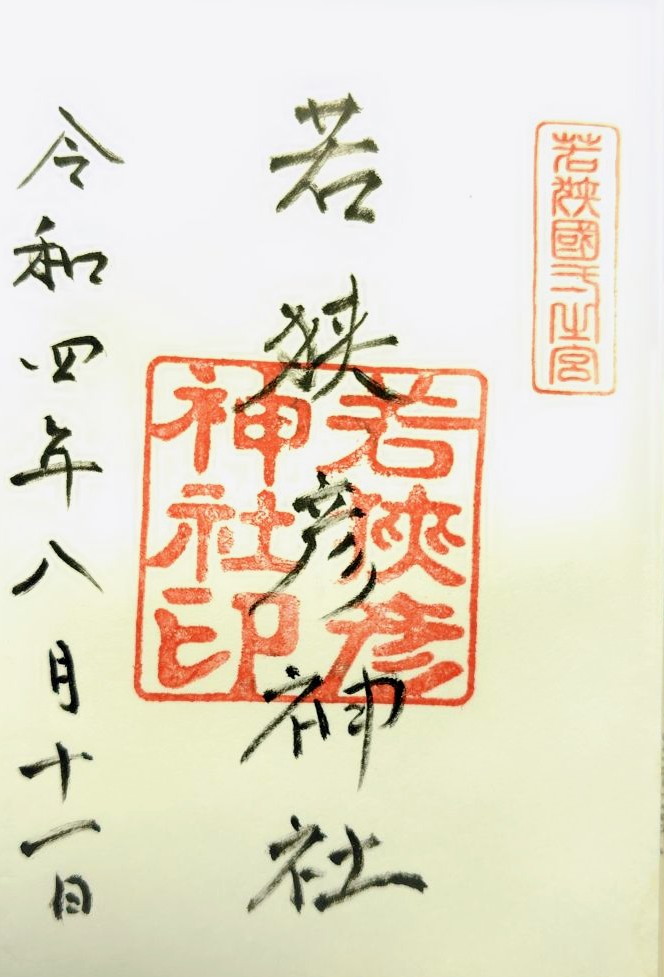 若狹國弌之宮
若狭彦神社
若狹彦
神社印
令和四年八月十一日